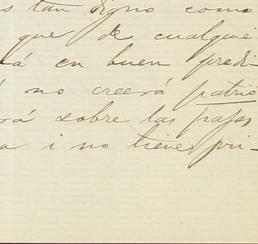 s tan digno como
que de cualquie
á en buen predi-
no creerá patrio
rá sobre las pajas
a i no tiene pri-